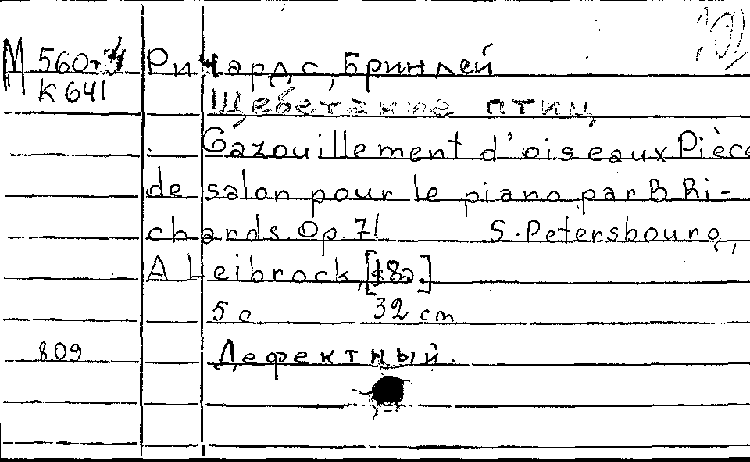 М 560-4 Ричардс, Бринлей
К 641
Щебетание птиц
Gazouillement d'oiseaux Pièce
de salon pour le piano par B. Ri-
chards. Op. 71 S. Petersbourg,
A Leibrock, [18
5 с 32 cm
809 Дефектный.